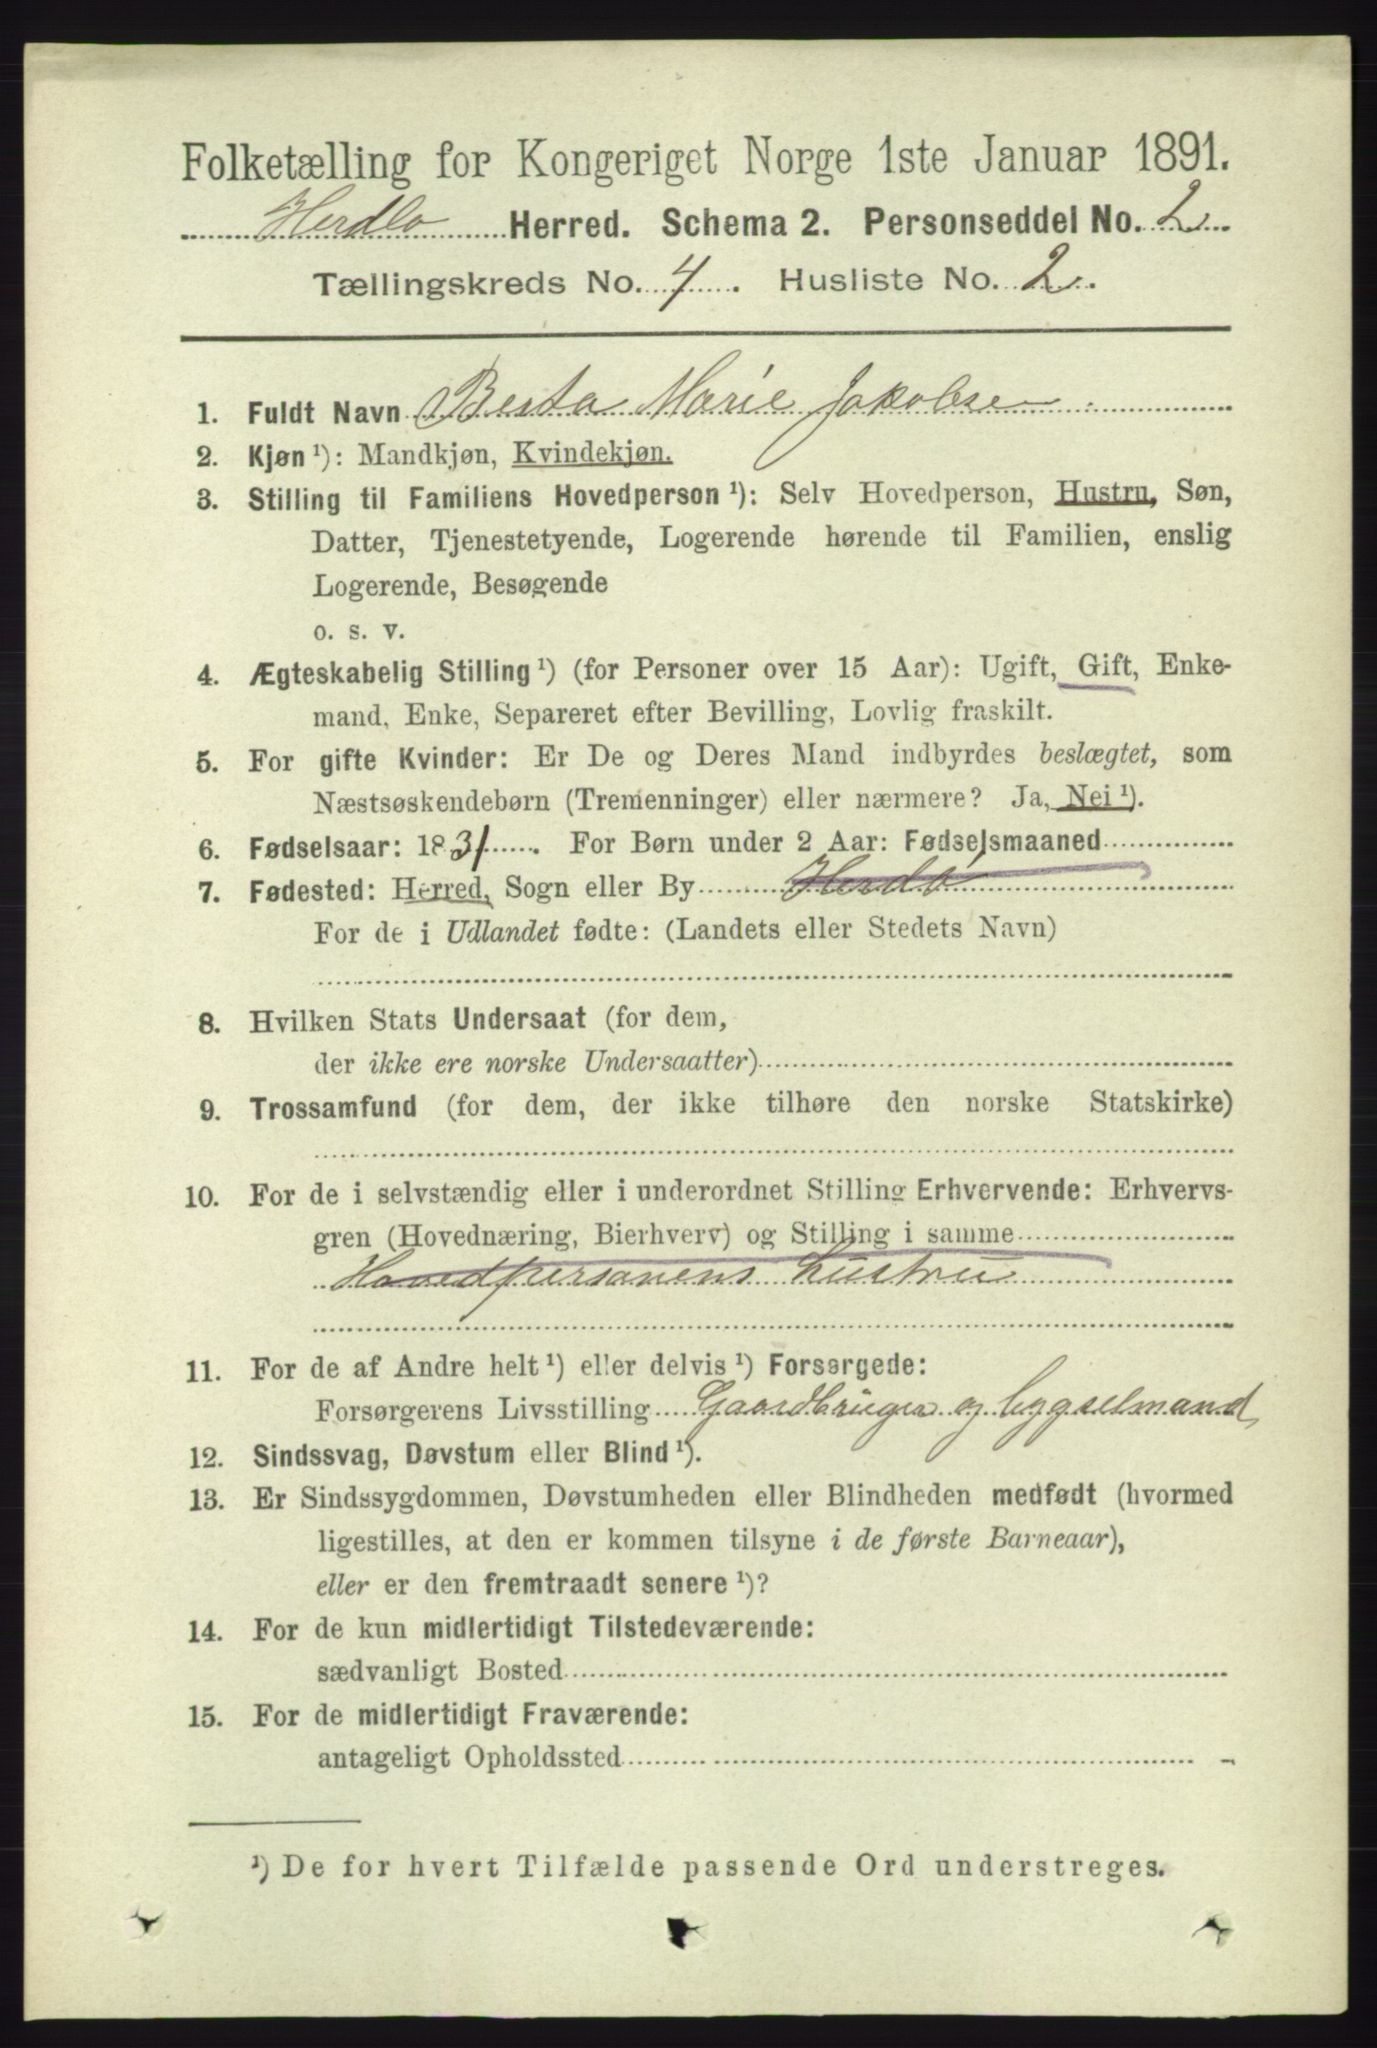 Folketælling for Kongeriget Norge 1ste Januar 1891.
Herdlo Herred. Schema 2. Personseddel No. 2.
Tællingskreds No. 4. Husliste No. 2.
1. Fuldt Navn Berta Marie Jakobse
2. Kjøn ¹): Mandkjøn, Kvindekjøn.
3. Stilling til Familiens Hovedperson ¹): Selv Hovedperson, Hustru, Søn,
Datter, Tjenestetyende, Logerende hørende til Familien, enslig
Logerende, Besøgende
o. s. v.
4. Ægteskabelig Stilling ¹) (for Personer over 15 Aar): Ugift, Gift, Enke-
mand, Enke, Separeret efter Bevilling, Lovlig fraskilt.
5. For gifte Kvinder: Er De og Deres Mand indbyrdes beslægtet, som
Næstsøskendebørn (Tremenninger) eller nærmere? Ja, Nei ¹).
6. Fødselsaar: 1831. For Børn under 2 Aar: Fødselsmaaned
7. Fødested: Herred, Sogn eller By Herdlo
For de i Udlandet fødte: (Landets eller Stedets Navn)
8. Hvilken Stats Undersaat (for dem,
der ikke ere norske Undersaatter)
9. Trossamfund (for dem, der ikke tilhøre den norske Statskirke)
10. For de i selvstændig eller i underordnet Stilling Erhvervende: Erhvervs-
gren (Hovednæring, Bierhverv) og Stilling i samme
Hovedpersonens hustru
11. For de af Andre helt ¹) eller delvis ¹) Forsørgede:
Forsørgerens Livsstilling Gaardbruger og bygselmand
12. Sindssvag, Døvstum eller Blind ¹).
13. Er Sindssygdommen, Døvstumheden eller Blindheden medfødt (hvormed
ligestilles, at den er kommen tilsyne i de første Barneaar),
eller er den fremtraadt senere ¹)?
14. For de kun midlertidigt Tilstedeværende:
sædvanligt Bosted
15. For de midlertidigt Fraværende:
antageligt Opholdssted
¹) De for hvert Tilfælde passende Ord understreges.